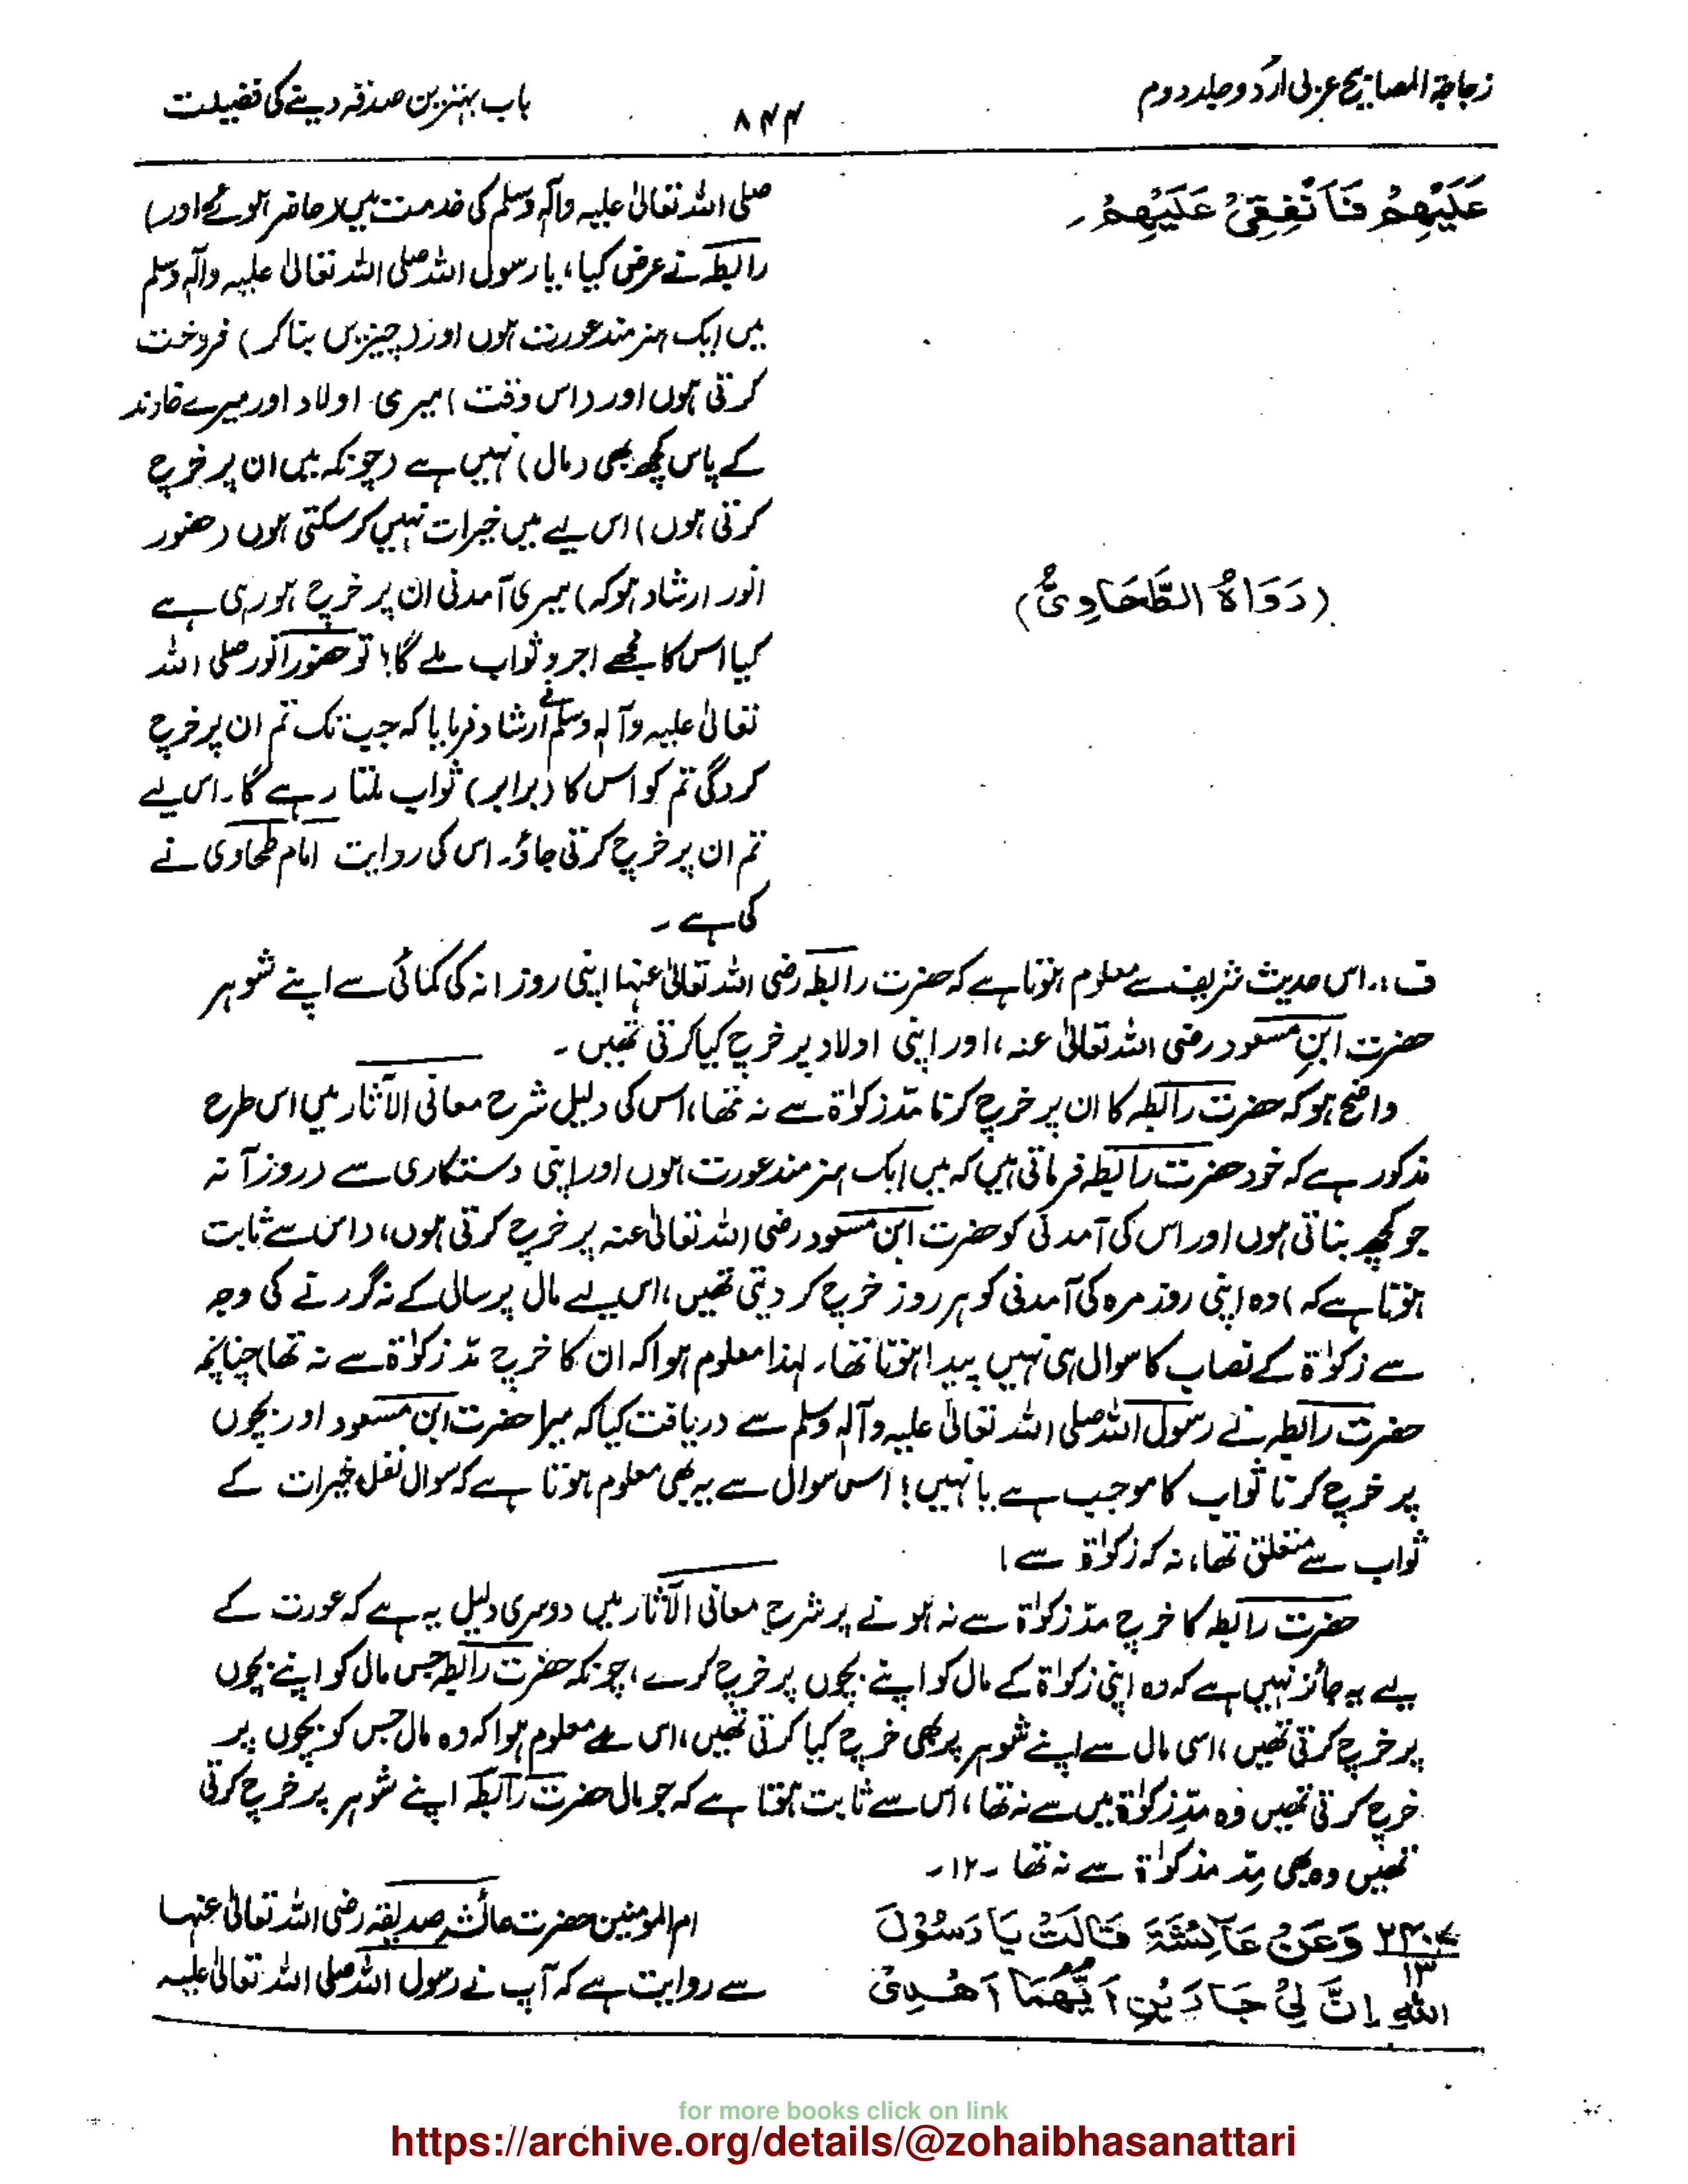 زجاجۃ المصابیح عربی اردو جلد دوم
۸۴۴
باب بہترین صدقہ دینے کی فضیلت
عَلَيْهِمْ فَاَنْفِقِيْ عَلَيْهِمْ۔
(رَوَاهُ الطَّحَاوِيُّ)
صلی اللہ تعالیٰ علیہ وآلہ وسلم کی خدمت میں (حاضر ہوئے اور)
رائطہ نے عرض کیا، یا رسول اللہ صلی اللہ تعالیٰ علیہ وآلہ وسلم
میں ایک ہنر مند عورت ہوں اور (چیزیں بنا کر) فروخت
کرتی ہوں اور (اس وقت) میری اولاد اور میرے خاوند
کے پاس کچھ بھی (مال) نہیں ہے (چونکہ میں ان پر خرچ
کرتی ہوں) اس لیے میں خیرات نہیں کر سکتی ہوں (حضور
انور ارشاد ہو کہ) میری آمدنی ان پر خرچ ہو رہی ہے
کیا اس کا مجھے اجر و ثواب ملے گا؟ تو حضور انور صلی اللہ
تعالیٰ علیہ وآلہ وسلم نے ارشاد فرمایا کہ جب تک تم ان پر خرچ
کروگی تم کو اس کا (برابر) ثواب ملتا رہے گا۔ اس لیے
تم ان پر خرچ کرتی جاؤ۔ اس کی روایت امام طحاوی نے
کی ہے۔
ف:۔ اس حدیث شریف سے معلوم ہوتا ہے کہ حضرت رائطہ رضی اللہ تعالیٰ عنہا اپنی روزانہ کی کمائی سے اپنے شوہر
حضرت ابن مسعود رضی اللہ تعالیٰ عنہ، اور اپنی اولاد پر خرچ کیا کرتی تھیں۔
واضح ہو کہ حضرت رائطہ کا ان پر خرچ کرنا مدّ زکوٰۃ سے نہ تھا، اس کی دلیل شرح معانی الآثار میں اس طرح
مذکور ہے کہ خود حضرت رائطہ فرماتی ہیں کہ میں ایک ہنر مند عورت ہوں اور اپنی دستکاری سے (روزآنہ
جو کچھ بناتی ہوں اور اس کی آمدنی کو حضرت ابن مسعود رضی اللہ تعالیٰ عنہ پر خرچ کرتی ہوں، (اس سے ثابت
ہوتا ہے کہ) وہ اپنی روز مرہ کی آمدنی کو ہر روز خرچ کر دیتی تھیں، اس لیے مال پر سال کے نہ گزرنے کی وجہ
سے زکوٰۃ کے نصاب کا سوال ہی نہیں پیدا ہوتا تھا۔ لہذا معلوم ہوا کہ ان کا خرچ مدّ زکوٰۃ سے نہ تھا) چنانچہ
حضرت رائطہ نے رسول اللہ صلی اللہ تعالیٰ علیہ وآلہ وسلم سے دریافت کیا کہ میرا حضرت ابن مسعود اور بچوں
پر خرچ کرنا ثواب کا موجب ہے یا نہیں! اس سوال سے یہ بھی معلوم ہوتا ہے کہ سوال نفل خیرات کے
ثواب سے متعلق تھا، نہ کہ زکوٰۃ سے!
حضرت رائطہ کا خرچ مدّ زکوٰۃ سے نہ ہونے پر شرح معانی الآثار میں دوسری دلیل یہ ہے کہ عورت کے
لیے یہ جائز نہیں ہے کہ وہ اپنی زکوٰۃ کے مال کو اپنے بچوں پر خرچ کرے، چونکہ حضرت رائطہ جس مال کو اپنے بچوں
پر خرچ کرتی تھیں، اسی مال سے اپنے شوہر پر بھی خرچ کیا کرتی تھیں، اس سے معلوم ہوا کہ وہ مال جس کو بچوں پر
خرچ کرتی تھیں وہ مدّ زکوٰۃ میں سے نہ تھا، اس سے ثابت ہوتا ہے کہ جو مال حضرت رائطہ اپنے شوہر پر خرچ کرتی
تھیں وہ بھی مِد مذکوٰۃ سے نہ تھا۔ ۱۲۔
وَعَنْ عَآئِشَةَ قَالَتْ يَا رَسُوْلَ
۱۳
اللّٰهِ اِنَّ لِيْ جَارَيْنِ اَيُّهُمَا اَهْدِيْ
ام المومنین حضرت عائشہ صدیقہ رضی اللہ تعالیٰ عنہا
سے روایت ہے کہ آپ نے رسول اللہ صلی اللہ تعالیٰ علیہ
for more books click on link
https://archive.org/details/@zohaibhasanattari